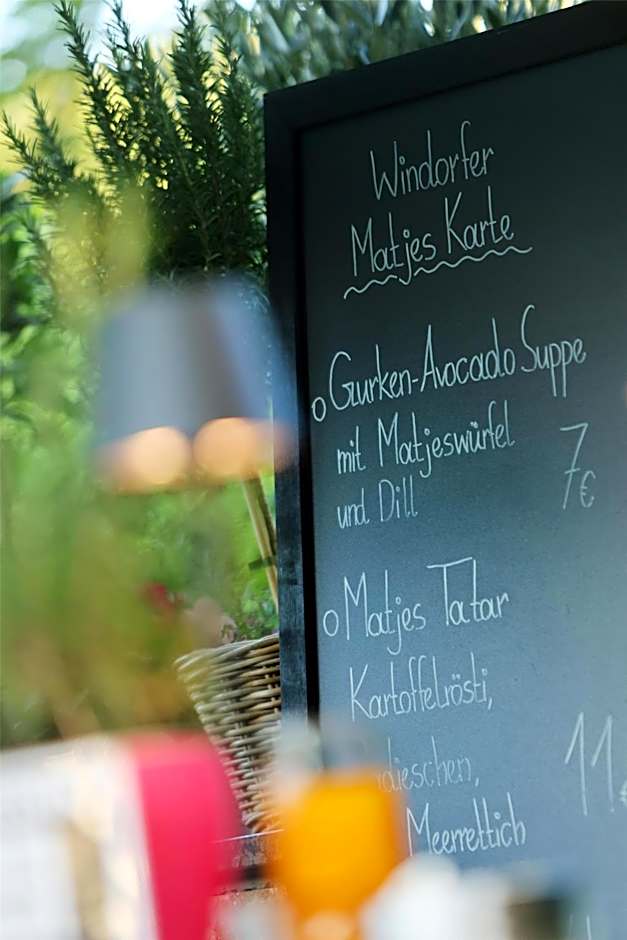 Windorfer
Matjes Karte
o Gurken-Avocado Suppe
mit Matjeswürfel
und Dill 7€
o Matjes Tatar
Kartoffelrösti,
dieschen, 11€
Meerrettich